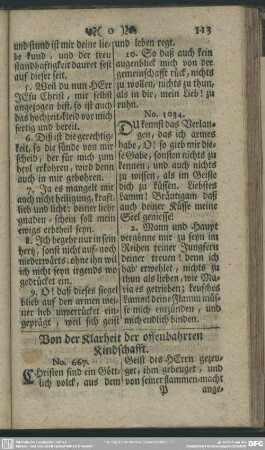 o 113
und stund ist mir deine lie-
be kund, und der treu
standhafftigkeit dauret fest
auf dieser seit.
5. Weil du nun HErr
JEsu Christ, mir selbst
angezogen bist, so ist auch
das hochzeit-kleid vor mich
fertig und bereit.
6. Diß ist die gerechtig-
keit, so die sünde von mir
scheidet, der für mich zum
heyl erkohren, wird denn
auch in mir gebohren.
7. Ja es mangelt mir
auch nicht heiligung, krafft,
lieb und licht: deiner liebe
gnaden, schein soll mein
ewigs erbtheil seyn.
8. Ich begehr nur in sein
hertz, sonst nicht auf- noch
niederwärts, ohne ihn wil
ich nicht seyn irgends wo
gedrücket ein.
9. O! daß dieses siegel
blieb auf den armen mei-
ner lieb unverrückt ein-
gepräget, weil sich geist
und leben regt.
10. So daß auch kein
augenblick mich von der
gemeinschafft rück, nichts
zu wollen, nichts zu thun,
als in dir, mein Lieb! zu
ruhn.
No. 1034.
DU kennst das Verlan-
gen, das ich armes
habe, O! so gieb mir die-
se Gabe, sonsten nichts zu
kennen, und auch nichts
zu wissen, als im Geiste
dich zu küssen. Liebstes
Lamm! Bräutigam daß
auch deiner Küsse meine
Seel geniesse!
2. Mann und Haupt
vergönne mir zu seyn im
Reihen reiner Jungfern
deiner treuen! denn ich
hab' erwehlet, nichts zu
thun als lieben, wie Ma-
ria es getrieben; keusches
Lamm! deine Flamm müs-
se mich entzünden, und
mich endlich binden.
Von der Klarheit der offenbahrten
Kindschafft.
No. 667.
CHristen sind ein Gött-
lich volck, aus dem
Geist des HErrn gezeu-
get, ihm gebeuget, und
von seiner flammen-macht
P ange-